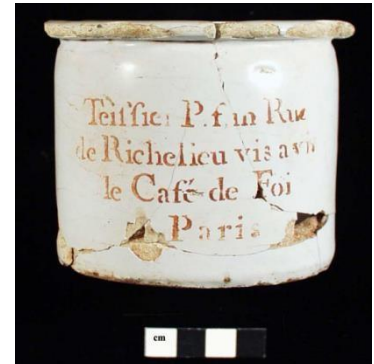 Teiſsier P.f.m Rue
de Richelieu vis a vis
le Café de Foi
A Paris
cm